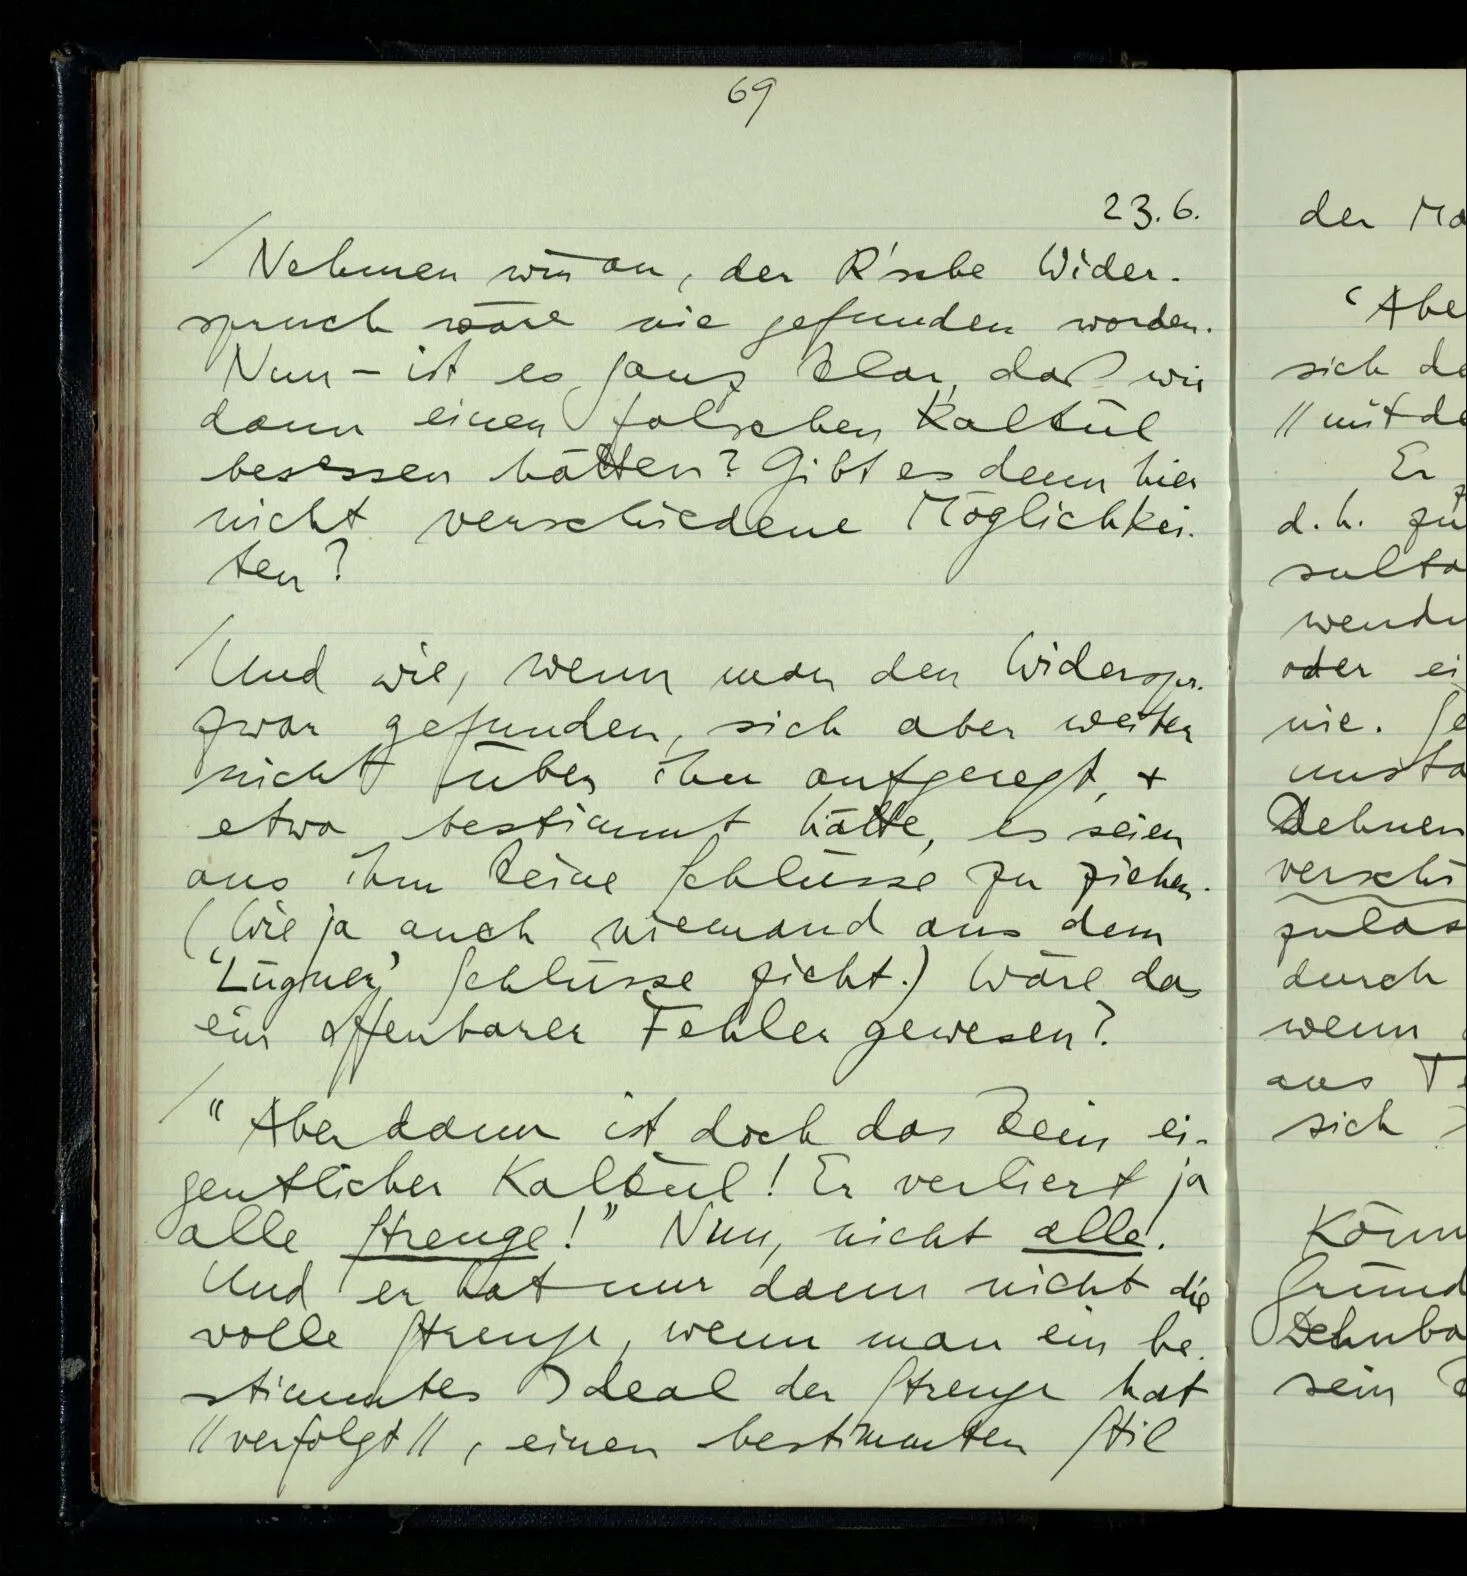 69
23.6.
/ Nehmen wir an, der R'sche Wider-
spruch wäre nie gefunden worden.
Nun – ist es ganz klar, daß wir
dann einen falschen Kalkül
besessen hätten? Gibt es denn hier
nicht verschiedene Möglichkei-
ten?
/ Und wie, wenn man den Widerspr.
zwar gefunden, sich aber weiter
nicht über ihn aufgeregt, +
etwa bestimmt hätte, es seien
aus ihm keine Schlüsse zu ziehen.
(Wie ja auch niemand aus dem
‘Lügner’ Schlüsse zieht.) Wäre das
ein offenbarer Fehler gewesen?
/ “Aber dann ist doch das kein ei-
gentlicher Kalkül! Er verliert ja
alle Strenge!” Nun, nicht alle.
Und er hat nur dann nicht die
volle Strenge, wenn man ein be-
stimmtes Ideal der Strenge hat
//verfolgt//, einen bestimmten Stil
der
‘Abe
sich
//mit de
Er
d.h. zu
wende
oder ei
nie.
Dehnen
verschi
zulas
durch
wenn
aus
sich
Könn
Grund
Dehnba
sein